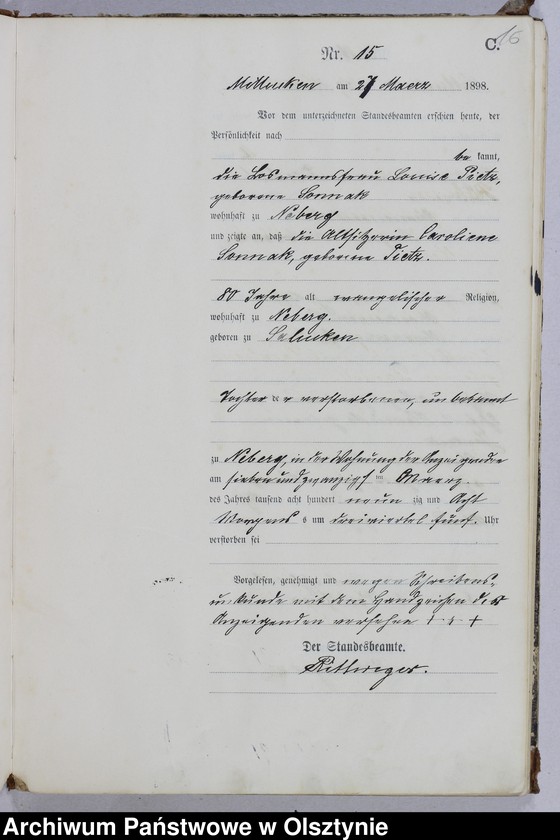 16
C.
Nr. 15
Mittucken am 27 Maerz 1898.
Vor dem unterzeichneten Standesbeamten erschien heute, der
Persönlichkeit nach
be kannt,
die Losmannsfrau Louise Pietz,
geborene Sonnak
wohnhaft zu Neberg
und zeigte an, daß die Altsitzerin Caroliene
Sonnak, geborene Tietz.
80 Jahre alt evangelischer Religion,
wohnhaft zu Neberg.
geboren zu Salucken
Tochter der verstorbenen, unbekannt
zu Neberg, in der Wohnung der Anzeigenden
am siebenundzwanzigst en Maerz
des Jahres tausend acht hundert neun zig und Acht
Morgens s um dreiviertel fünf. Uhr
verstorben sei
Vorgelesen, genehmigt und wegen Schreibens-
unkunde mit dem Handzeichen der
Anzeigenden versehen + + +
Der Standesbeamte.
Archiwum Państwowe w Olsztynie